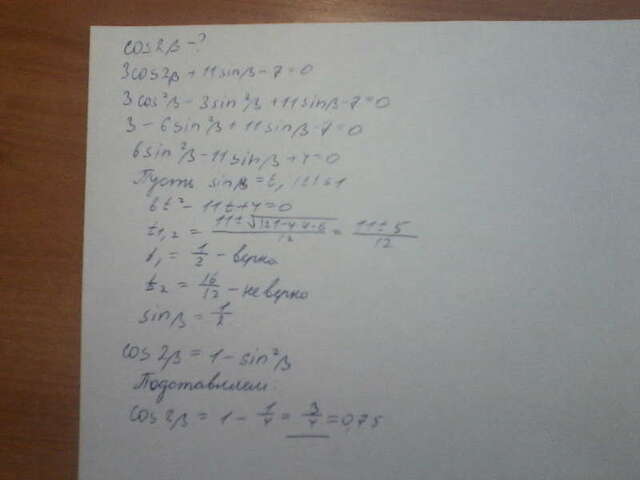 cos2β - ?
3cos2β + 11sinβ - 7 = 0
3cos²β - 3sin²β + 11sinβ - 7 = 0
3 - 6sin²β + 11sinβ - 7 = 0
6sin²β - 11sinβ + 4 = 0
Пусть sinβ = t, |t| ≤ 1
6t² - 11t + 4 = 0
t₁,₂ = (11 ± √(121 - 4·4·6))/12 = (11 ± 5)/12
t₁ = 1/2 - верно
t₂ = 16/12 - неверно
sinβ = 1/2
cos2β = 1 - sin²β
Подставляем:
cos2β = 1 - 1/4 = 3/4 = 0,75